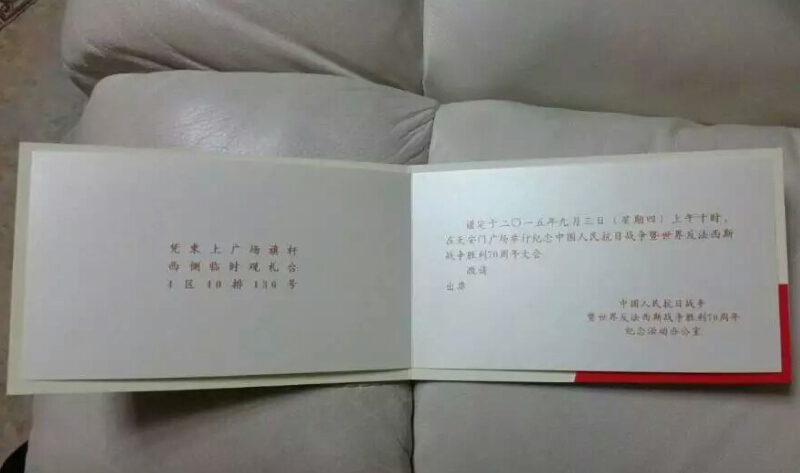 凭柬上广场旗杆
西侧临时观礼台
4区40排136号
谨定于二〇一五年九月三日（星期四）上午十时，
在天安门广场举行纪念中国人民抗日战争暨世界反法西斯
战争胜利70周年大会
敬请
出席
中国人民抗日战争
暨世界反法西斯战争胜利70周年
纪念活动办公室